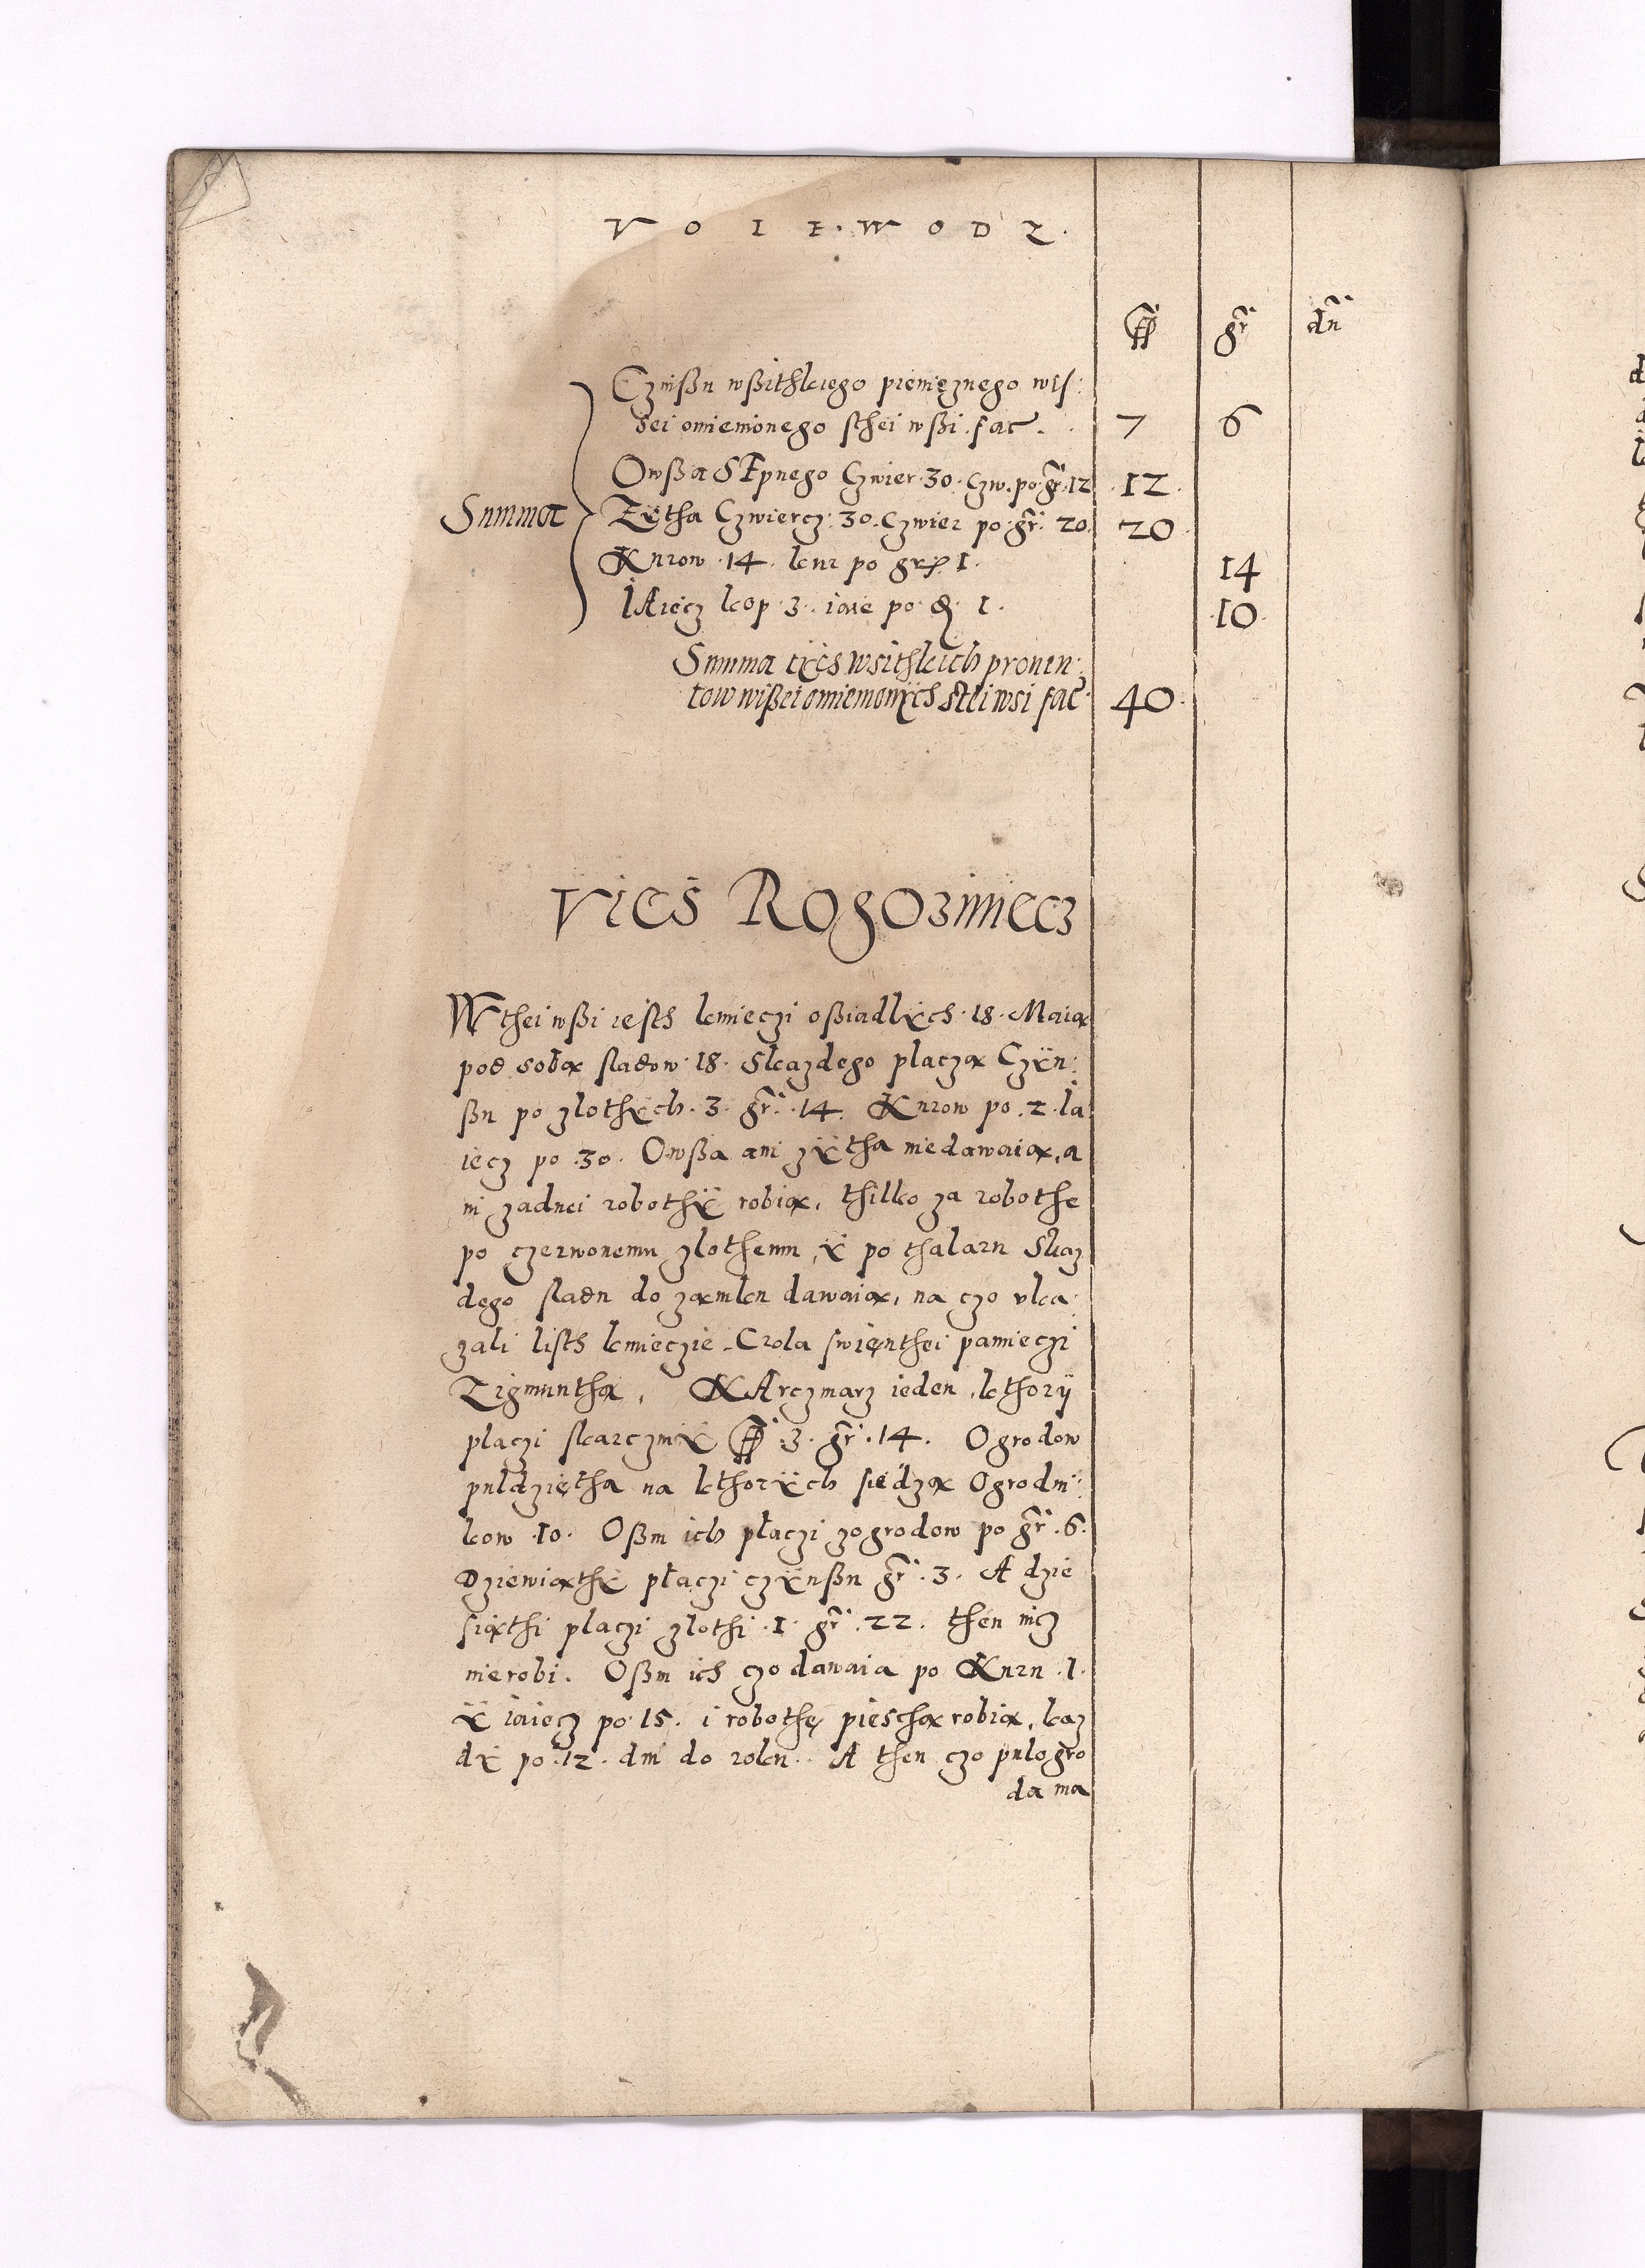 VOIEWODZ.
fl gr dn
Czinßu wßithkiego pieniężnego wis:
sei omienionego sthei wßi fac. 7 6
Owßa Sępnego Czwier. 30. Czw. po gr. 12 12.
Summa Zÿtha Czwiercz. 30. Czwier po gr. 20. 20
Kurow 14. kur po gr. 1. 14
IAiecz kop 3. iaie po d. 1. 10.
Summa tÿch wsithkich prouen:
tow wißei omienionÿch stei wsi fac. 40.
VIES ROgOziniecz
W thei wßi iesth kmieczi oßiadlÿch. 18. Maia
pod soba sladow. 18. Skazdego placza Czÿn:
ßu po zlothÿch. 3. gr. 14. Kurow po. 2. Ia
iecz po. 30. Owßa ani zÿtha niedawaia, a
ni zadnei robothÿ robia, thilko za robothe
po czerwonemu zlothemu, ÿ po thalaru Skaz
dego sladu do zamku dawaia, na czo vka:
zali listh kmieczie Crola swięnthei pamieczi
Zigmuntha, KArczmarz ieden, kthorij
placzi skarczmÿ fl 3. gr. 14. Ogrodow
puldziętha na kthorÿch siedza Ogrodni:
kow 10. Oßm ich płaczi zogrodow po gr. 6.
Dziewiathÿ płaczi czÿnßu gr. 3. A dzie
siąthi placzi zlothi. 1. gr. 22. then nicz
nierobi. Oßm ich czo dawaia po Kuru. 1.
ÿ iaiecz po 15. i robothę piescha robia, kaz
dÿ po. 12. dni do roku. A then czo pulogro
da ma